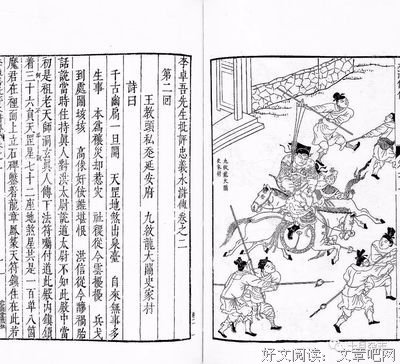 九紋龍大鬧
史家村
李卓吾先生批評忠義水滸傳卷之二
第二回
王教頭私走延安府 九紋龍大鬧史家村
詩曰
千古幽扃一旦開 天罡地煞出泉臺 自來無事多
生事 本為禳災却惹災 社稷從今雲擾擾 兵戈
到處鬧垓垓 高俅奸佞雖堪恨 洪信從今釀禍胎
話說當時住持真人對洪太尉說道太尉不知此殿中當
初是祖老天師洞玄真人傳下法符囑付道此殿內鎮鎖
着三十六員天罡星七十二座地煞星共是一百單八箇
魔君在裡面上立石碑鑿着龍章鳳篆天符鎮住在此若
好文阅读：文章吧网